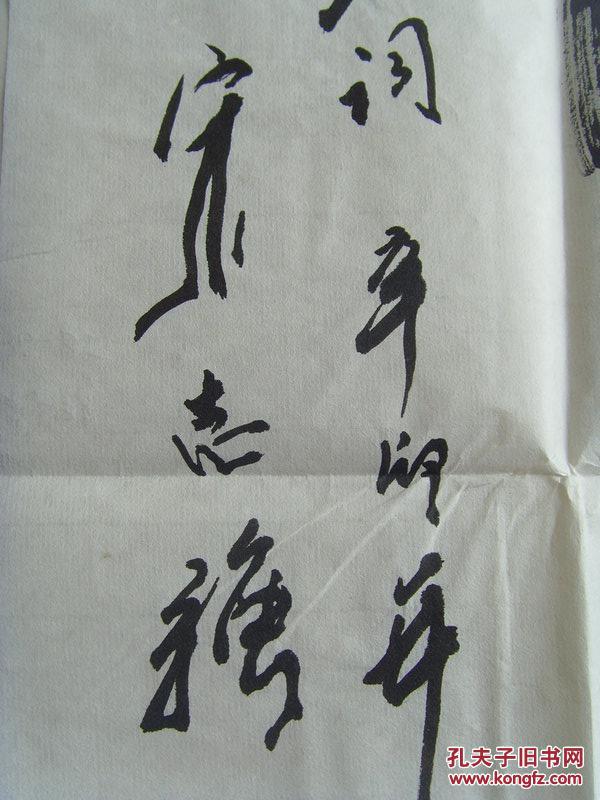 词 辛卯年
宋志強
孔夫子旧书网
www.kongfz.com